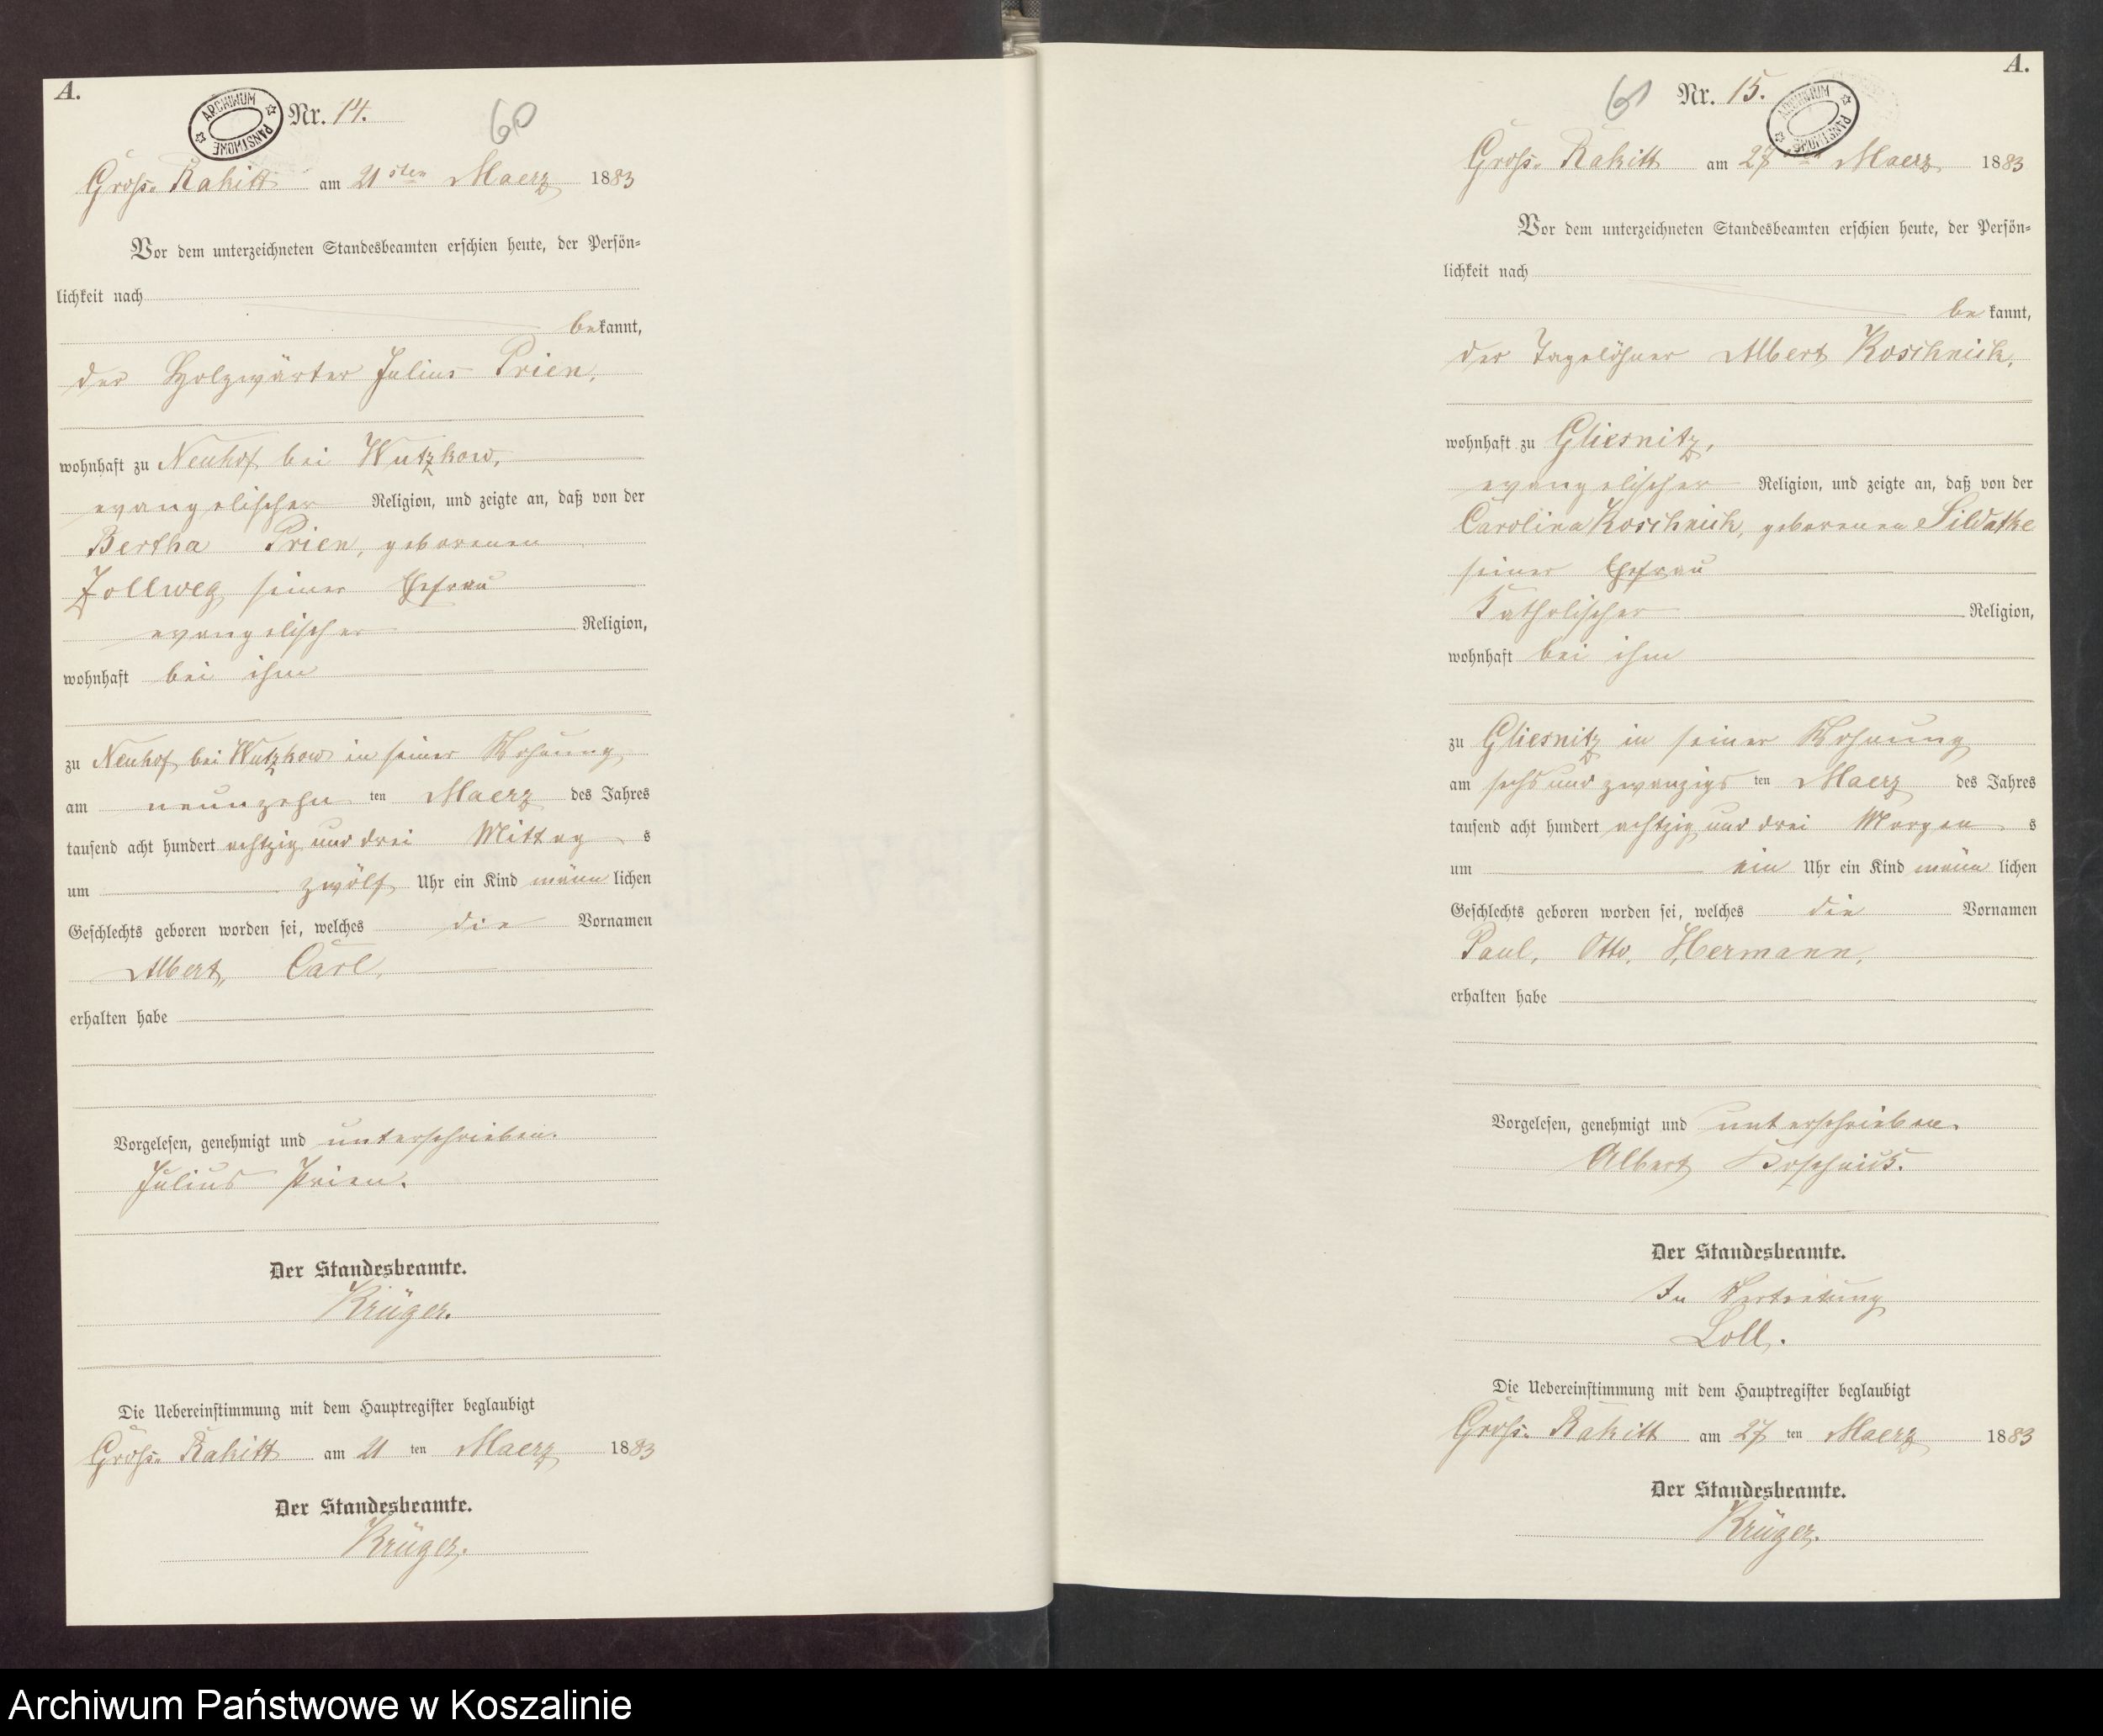 A.
ARCHIWUM PAŃSTWOWE
Nr. 14.
60
Gross-Rakitt am 21sten Maerz 1883
Vor dem unterzeichneten Standesbeamten erschien heute, der Persön-
lichkeit nach
bekannt,
der Holzwärter Julius Prien,
wohnhaft zu Neuhof bei Wutzkow,
evangelischer Religion, und zeigte an, daß von der
Bertha Prien, geborenen
Zollweg, seiner Ehefrau
evangelischer Religion,
wohnhaft bei ihm
zu Neuhof bei Wutzkow in seiner Wohnung
am neunzehn ten Maerz des Jahres
tausend acht hundert achtzig und drei Mittag s
um zwölf Uhr ein Kind männlichen
Geschlechts geboren worden sei, welches die Vornamen
Albert, Carl,
erhalten habe
Vorgelesen, genehmigt und unterschrieben.
Julius Prien.
Der Standesbeamte.
Krüger.
Die Uebereinstimmung mit dem Hauptregister beglaubigt
Gross-Rakitt am 21 ten Maerz 1883
Der Standesbeamte.
Krüger.
A.
61
Nr. 15.
ARCHIWUM PAŃSTWOWE
Gross-Rakitt am 27 Maerz 1883
Vor dem unterzeichneten Standesbeamten erschien heute, der Persön-
lichkeit nach
bekannt,
der Tagelöhner Albert Koschnick,
wohnhaft zu Gliesnitz,
evangelischer Religion, und zeigte an, daß von der
Carolina Koschnick, geborenen Sildatke
seiner Ehefrau
Katholischer Religion,
wohnhaft bei ihm
zu Gliesnitz in seiner Wohnung
am sechs und zwanzigs ten Maerz des Jahres
tausend acht hundert achtzig und drei Morgen s
um ein Uhr ein Kind männlichen
Geschlechts geboren worden sei, welches die Vornamen
Paul, Otto, Hermann,
erhalten habe
Vorgelesen, genehmigt und unterschrieben.
Albert Koschnick.
Der Standesbeamte.
In Vertretung
Loll.
Die Uebereinstimmung mit dem Hauptregister beglaubigt
Gross-Rakitt am 27 ten Maerz 1883
Der Standesbeamte.
Krüger.
Archiwum Państwowe w Koszalinie